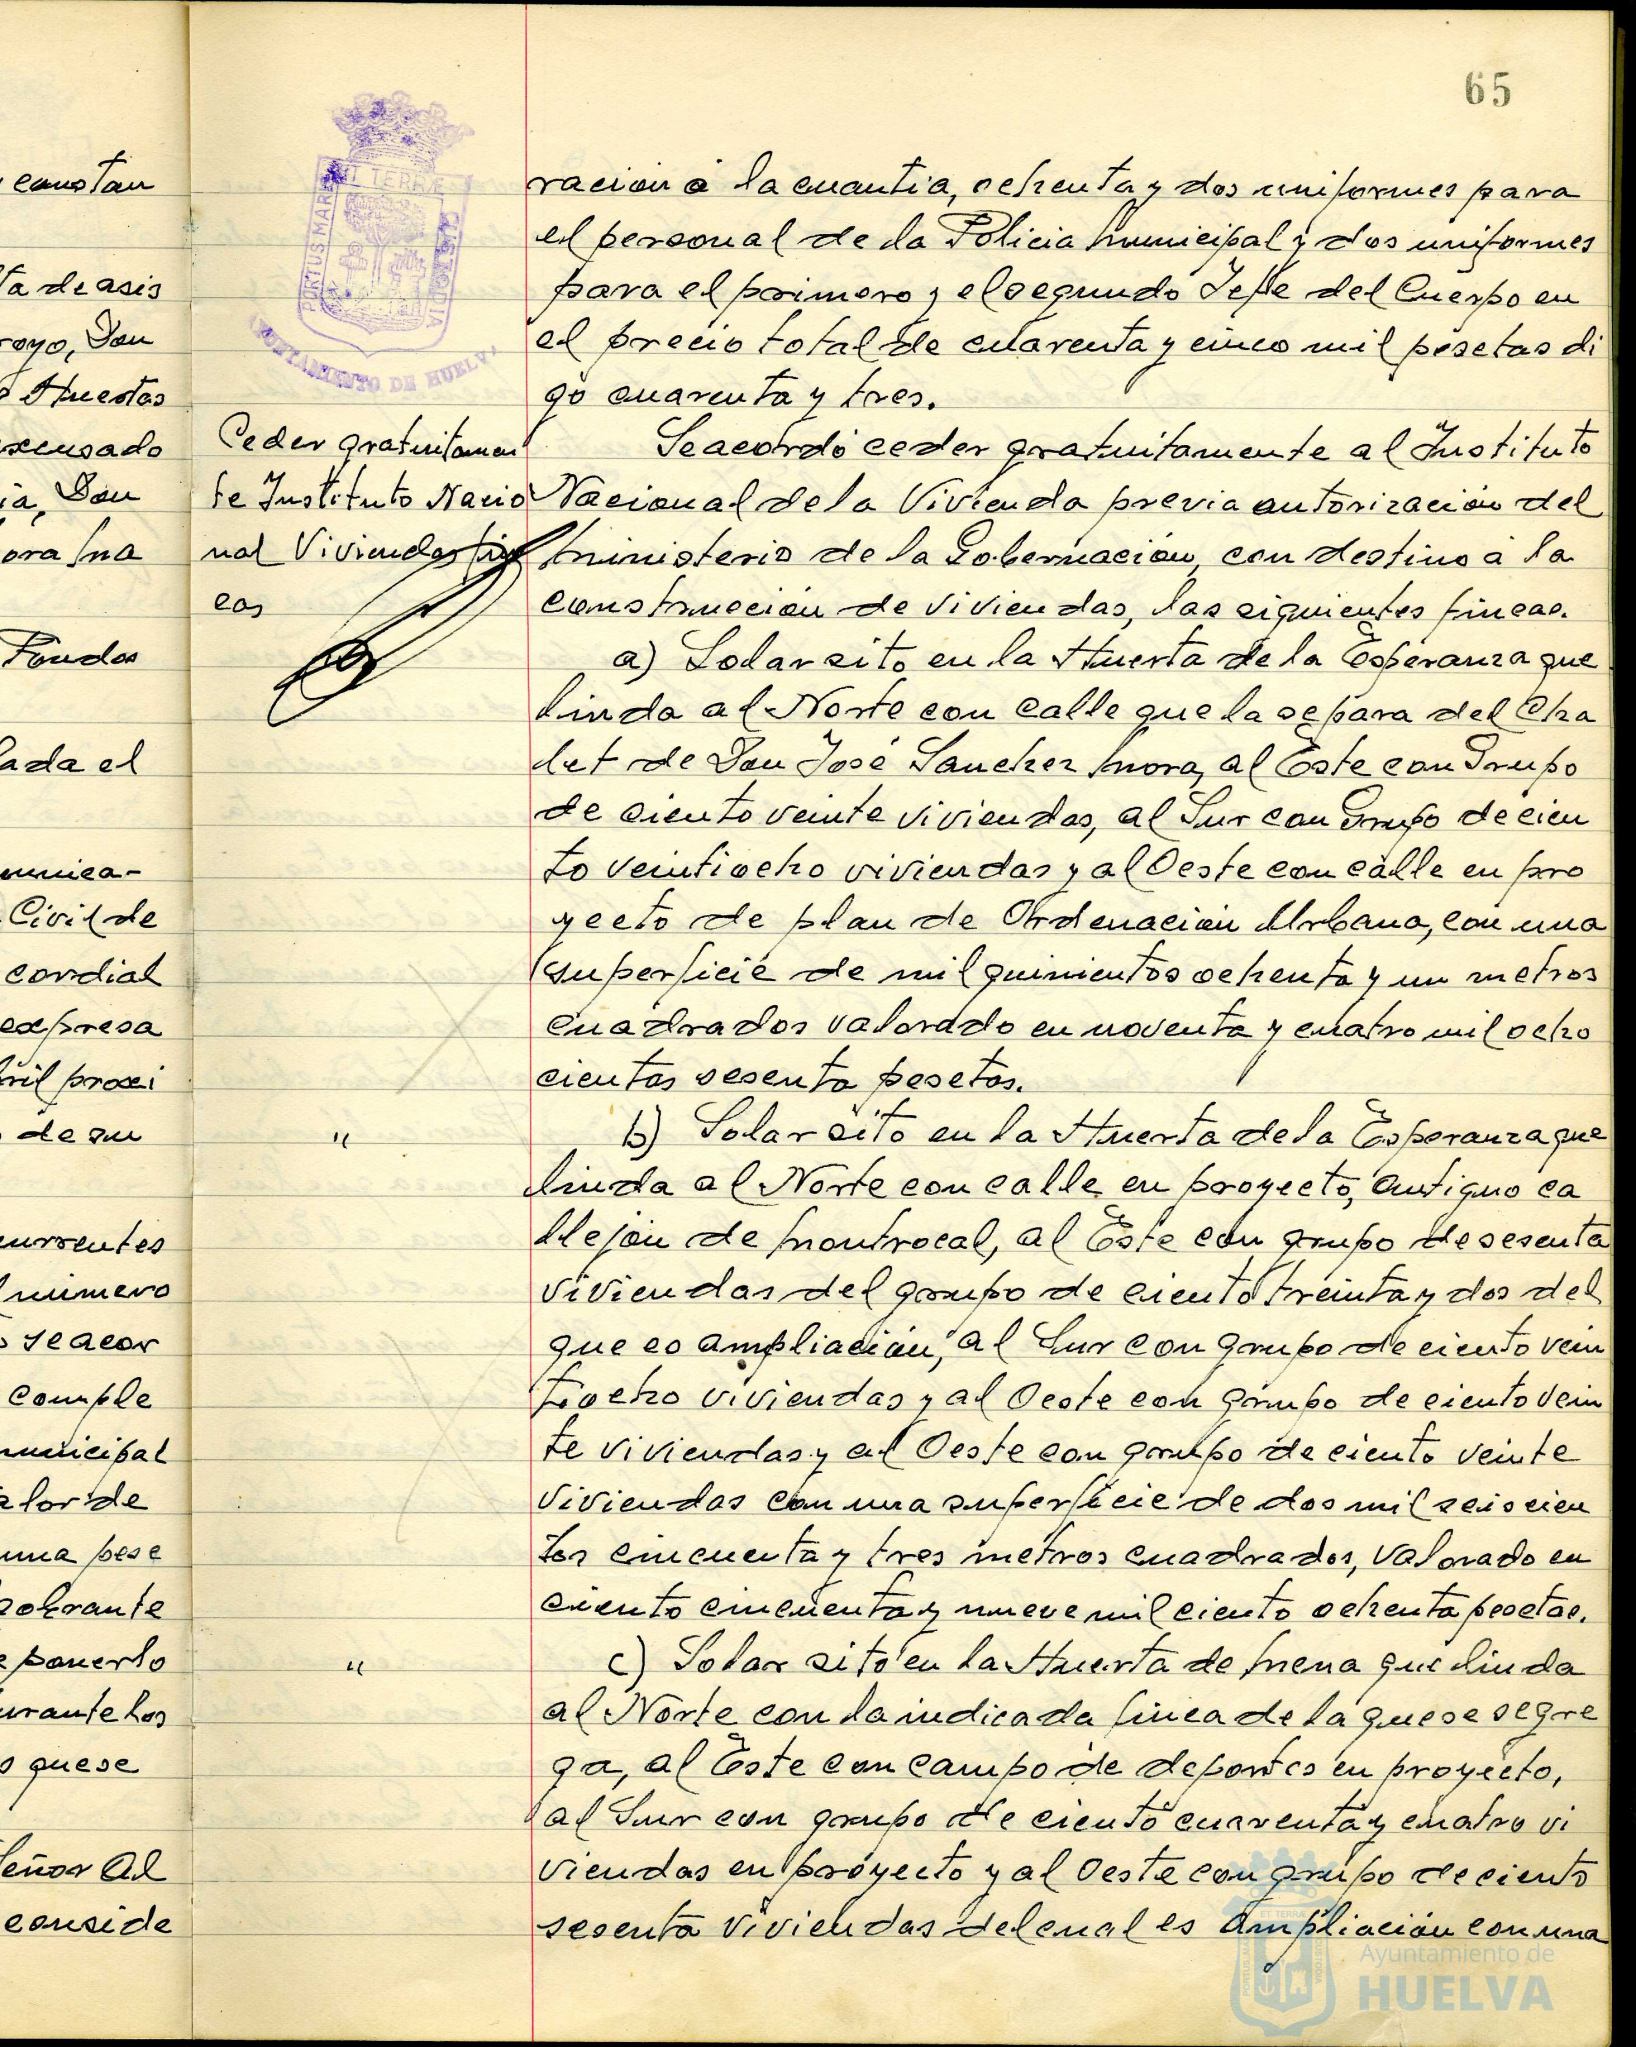 65
constan
ta de asis
royo, Don
Huertas
xcusado
ia, Don
ora Ma
Fondos
lada el
munica-
Civil de
cordial
expresa
bril proxi
de su
currentes
número
se acor
comple
municipal
alor de
una pese
sobrante
ponerlo
urante los
que se
Señor Al
conside
ET TERRÆ
PORTUS MARIS
CUSTODIA
AYUNTAMIENTO DE HUELVA
Ceder gratuitamen
te Instituto Nacio
nal Viviendas fin
cas
"
"
ración a la cuantia, ochenta y dos uniformes para
el personal de la Policia Municipal y dos uniformes
para el primero y el segundo Jefe del Cuerpo en
el precio total de cuarenta y cinco mil pesetas di
go cuarenta y tres.
Se acordó ceder gratuitamente al Instituto
Nacional de la Vivienda previa autorización del
Ministerio de la Gobernación, con destino a la
construcción de viviendas, las siguientes fincas.
a) Solar sito en la Huerta de la Esperanza que
linda al Norte con calle que la separa del Cha
let de Don José Sanchez Mora, al Este con Grupo
de ciento veinte viviendas, al Sur con Grupo de cien
to veintiocho viviendas y al Oeste con calle en pro
yecto de plan de Ordenación Urbana, con una
superficie de mil quinientos ochenta y un metros
cuadrados valorado en noventa y cuatro mil ocho
cientas sesenta pesetas.
b) Solar sito en la Huerta de la Esperanza que
linda al Norte con calle en proyecto, antiguo ca
llejón de Montrocal, al Este con grupo de sesenta
viviendas del grupo de ciento treinta y dos del
que es ampliación, al Sur con grupo de ciento vein
tiocho viviendas y al Oeste con grupo de ciento vein
te viviendas y al Oeste con grupo de ciento veinte
viviendas con una superficie de dos mil seiscien
tos cincuenta y tres metros cuadrados, valorado en
ciento cincuenta y nueve mil ciento ochenta pesetas.
c) Solar sito en la Huerta de Mena que linda
al Norte con la indicada finca de la que se segre
ga, al Este con campo de deportes en proyecto,
al Sur con grupo de ciento cuarenta y cuatro vi
viendas en proyecto y al Oeste con grupo de ciento
sesenta viviendas del cual es ampliación con una
Ayuntamiento de
HUELVA